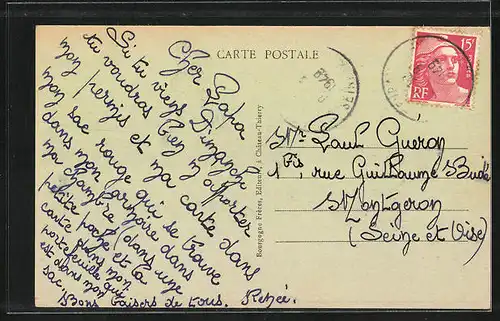 CARTE POSTALE
15F
RF
1949
Cher Papa
Si tu viens Dimanche
tu voudras bien m'apporter
mon permis et ma carte dans
mon sac rouge qui se trouve
dans mon armoire dans
ma chambre (dans une
petite poche et la
carte dans mon
portefeuille qui
est dans mon
sac.
Bons baisers de tous. Renée.
Mr. Paul Gueron
1 bis, rue Guillaume Budé
Montgeron
(Seine et Oise)
Bourgogne Frères, Editeurs à Château-Thierry